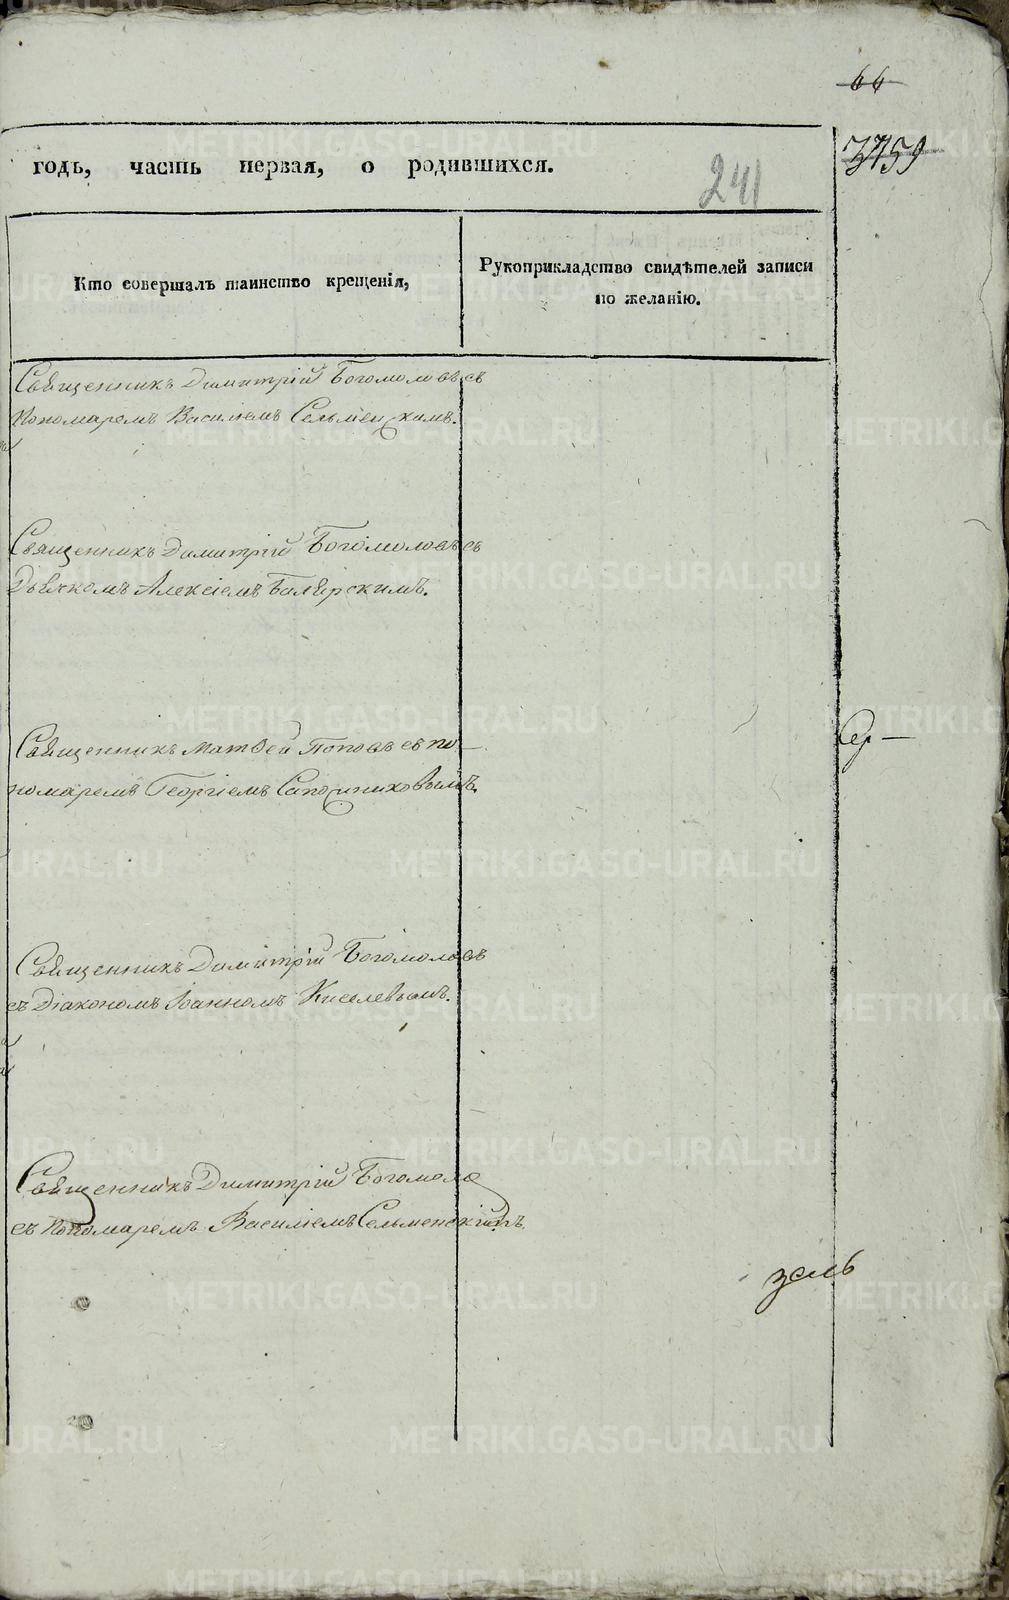 66
3759
годъ, часть первая, о родившихся.
241
Кто совершалъ таинство крещенія,
Рукоприкладство свидѣтелей записи
по желанію.
Священникъ Димитрій Богомоловъ съ
Пономаремъ Василіемъ Сельменскимъ.
Священникъ Димитрій Богомоловъ съ
Дьячкомъ Алексіемъ
Священникъ Матѳей Поповъ съ по-
номаремъ Георгіемъ Сапожниковымъ.
Священникъ Димитрій Богомоловъ
съ Діакономъ Іоанномъ Киселевымъ.
Священникъ Димитрій Богомоло
съ Пономаремъ Василіемъ Сельменскимъ.
METRIKI.GASO-URAL.RU